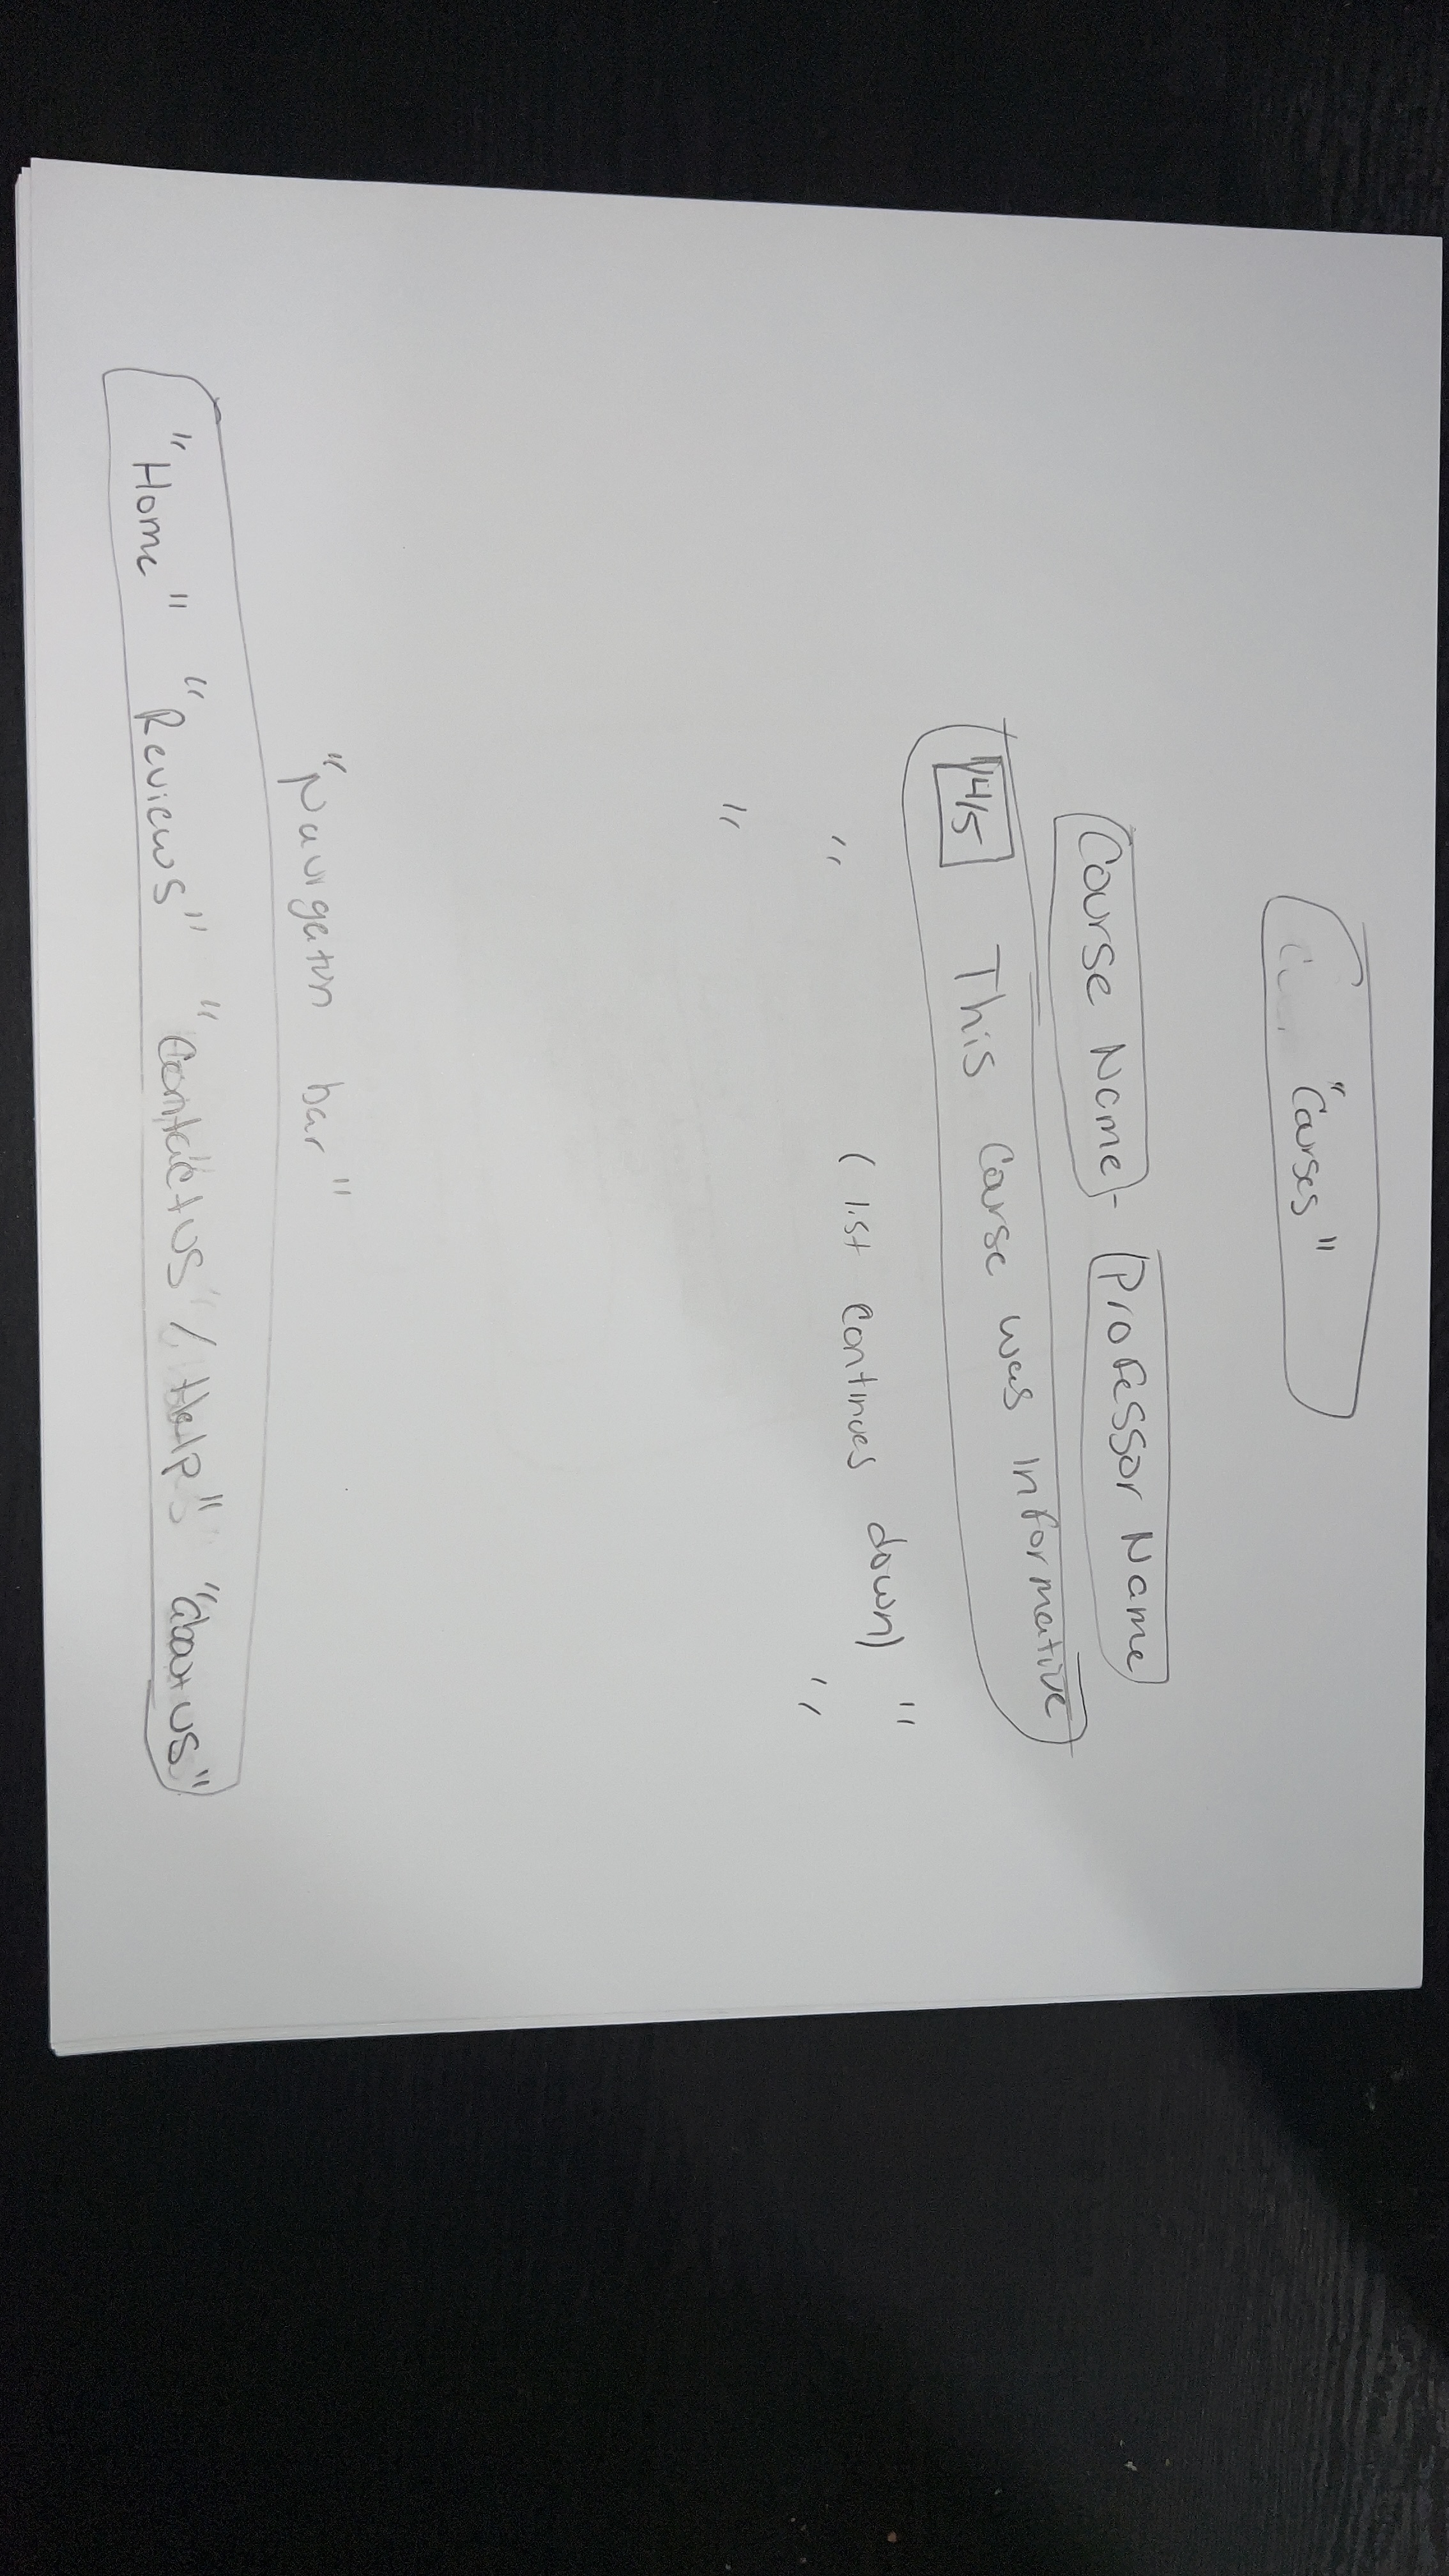 "Courses"
Course Name - Professor Name
4/5 This Course was informative
" (list continues down) "
"
"
"Navigaton bar"
"Home" "Reviews" "Contact us / Help" "about us"